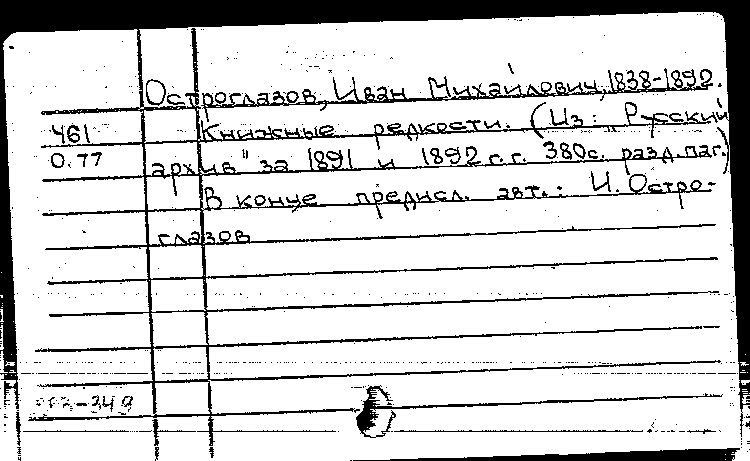 Остроглазов, Иван Михайлович, 1838-1892.
461 Книжные редкости. (Из: „Русский
0.77 архив" за 1891 и 1892 г.г. 380с. разд. паг.)
В конце предисл. авт.: И. Остро-
глазов
-349